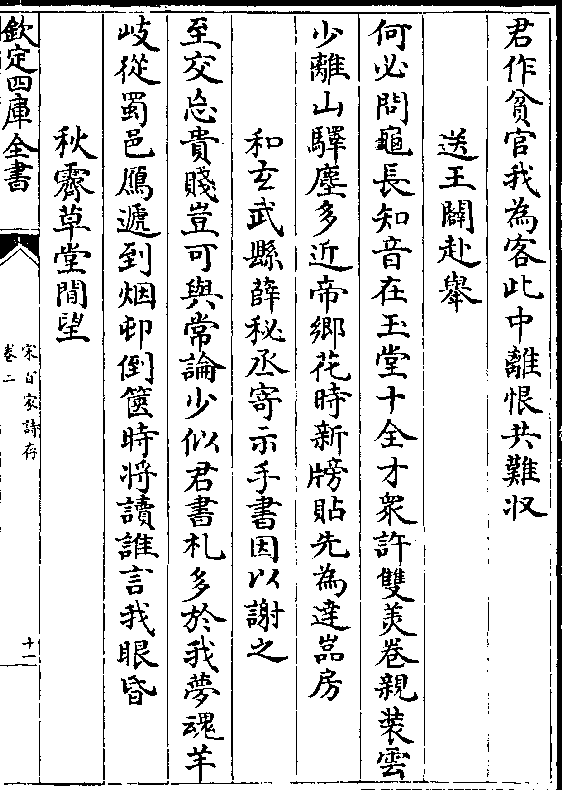 君作貧官我為客此中離恨共難收
送王闢赴舉
何必問龜長知音在玉堂十全才衆許雙美卷親裝雲
少離山驛塵多近帝鄉花時新牓貼先為達嵓房
和玄武縣薛秘丞寄示手書因以謝之
至交忘貴賤豈可與常論少似君書札多於我夢魂羊
岐從蜀邑鴈遞到烟邨倒篋時將讀誰言我眼昏
秋霽草堂閒望
欽定四庫全書
宋百家詩存
卷二
十二